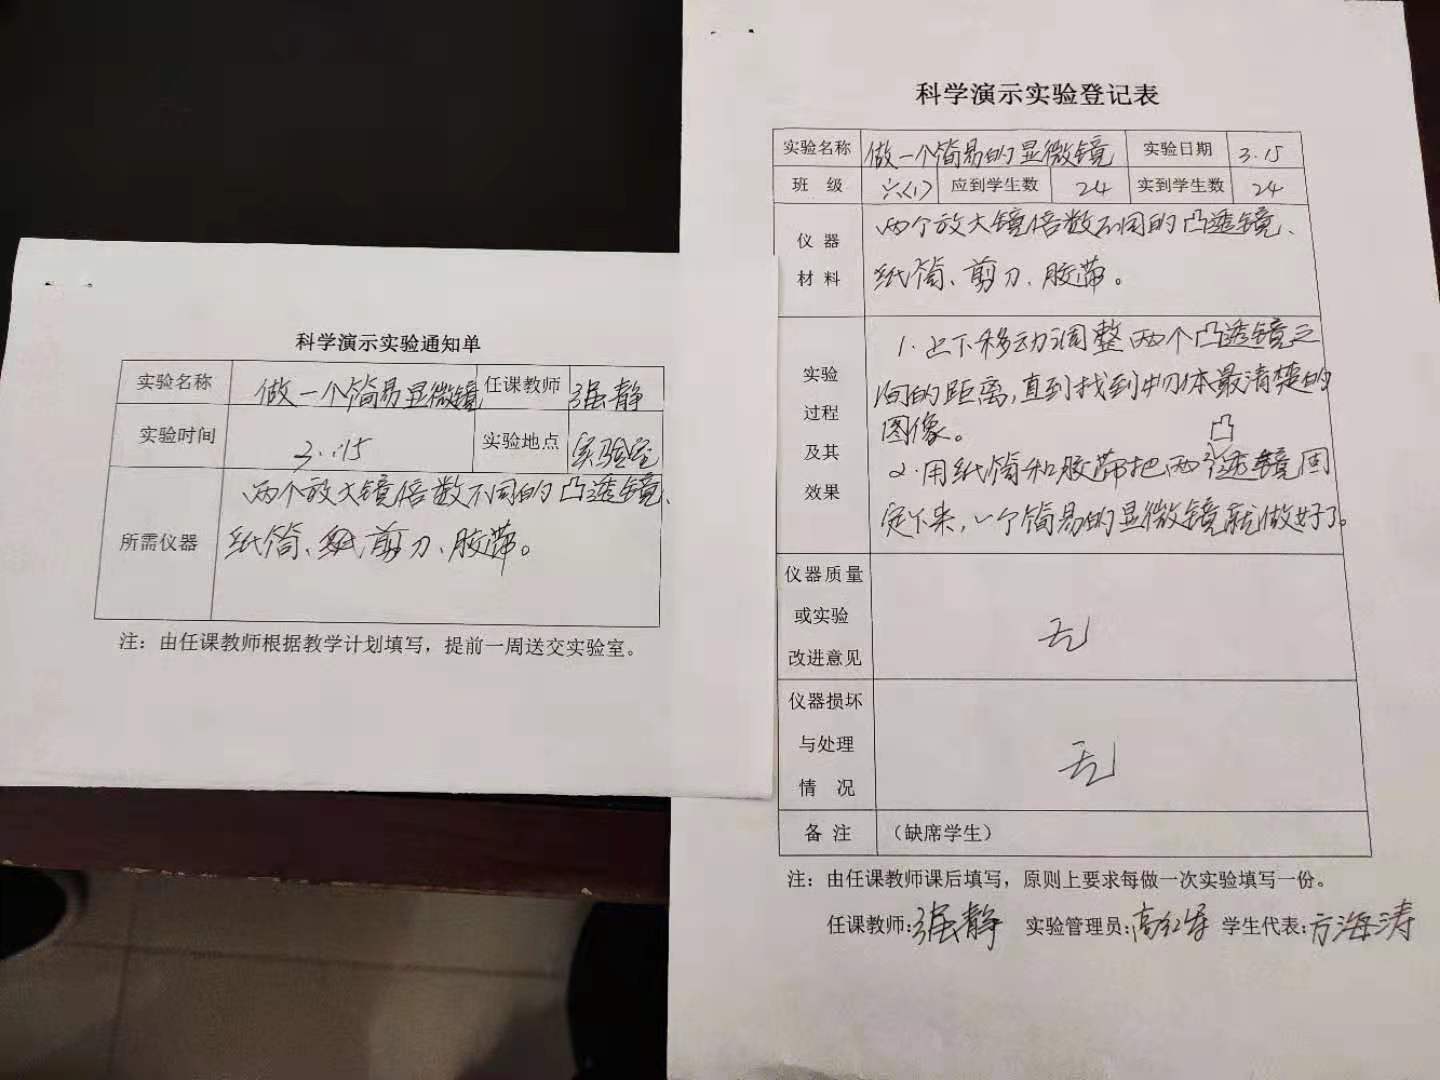 科学演示实验通知单
实验名称 做一个简易显微镜 任课教师 强静
实验时间 3.15 实验地点 实验室
所需仪器
两个放大镜倍数不同的凸透镜、
纸筒、剪刀、胶带。
注：由任课教师根据教学计划填写，提前一周送交实验室。
科学演示实验登记表
实验名称 做一个简易的显微镜 实验日期 3.15
班 级 六(1) 应到学生数 24 实到学生数 24
仪 器
材 料
两个放大镜倍数不同的凸透镜、
纸筒、剪刀、胶带。
实验
过程
及其
效果
1.上下移动调整两个凸透镜之
间的距离,直到找到物体最清楚的
图像。
2.用纸筒和胶带把两个凸透镜固
定下来,一个简易的显微镜就做好了。
仪器质量
或实验
改进意见
无
仪器损坏
与处理
情 况
无
备 注 （缺席学生）
注：由任课教师课后填写，原则上要求每做一次实验填写一份。
任课教师:强静 实验管理员:高红军 学生代表:方海涛